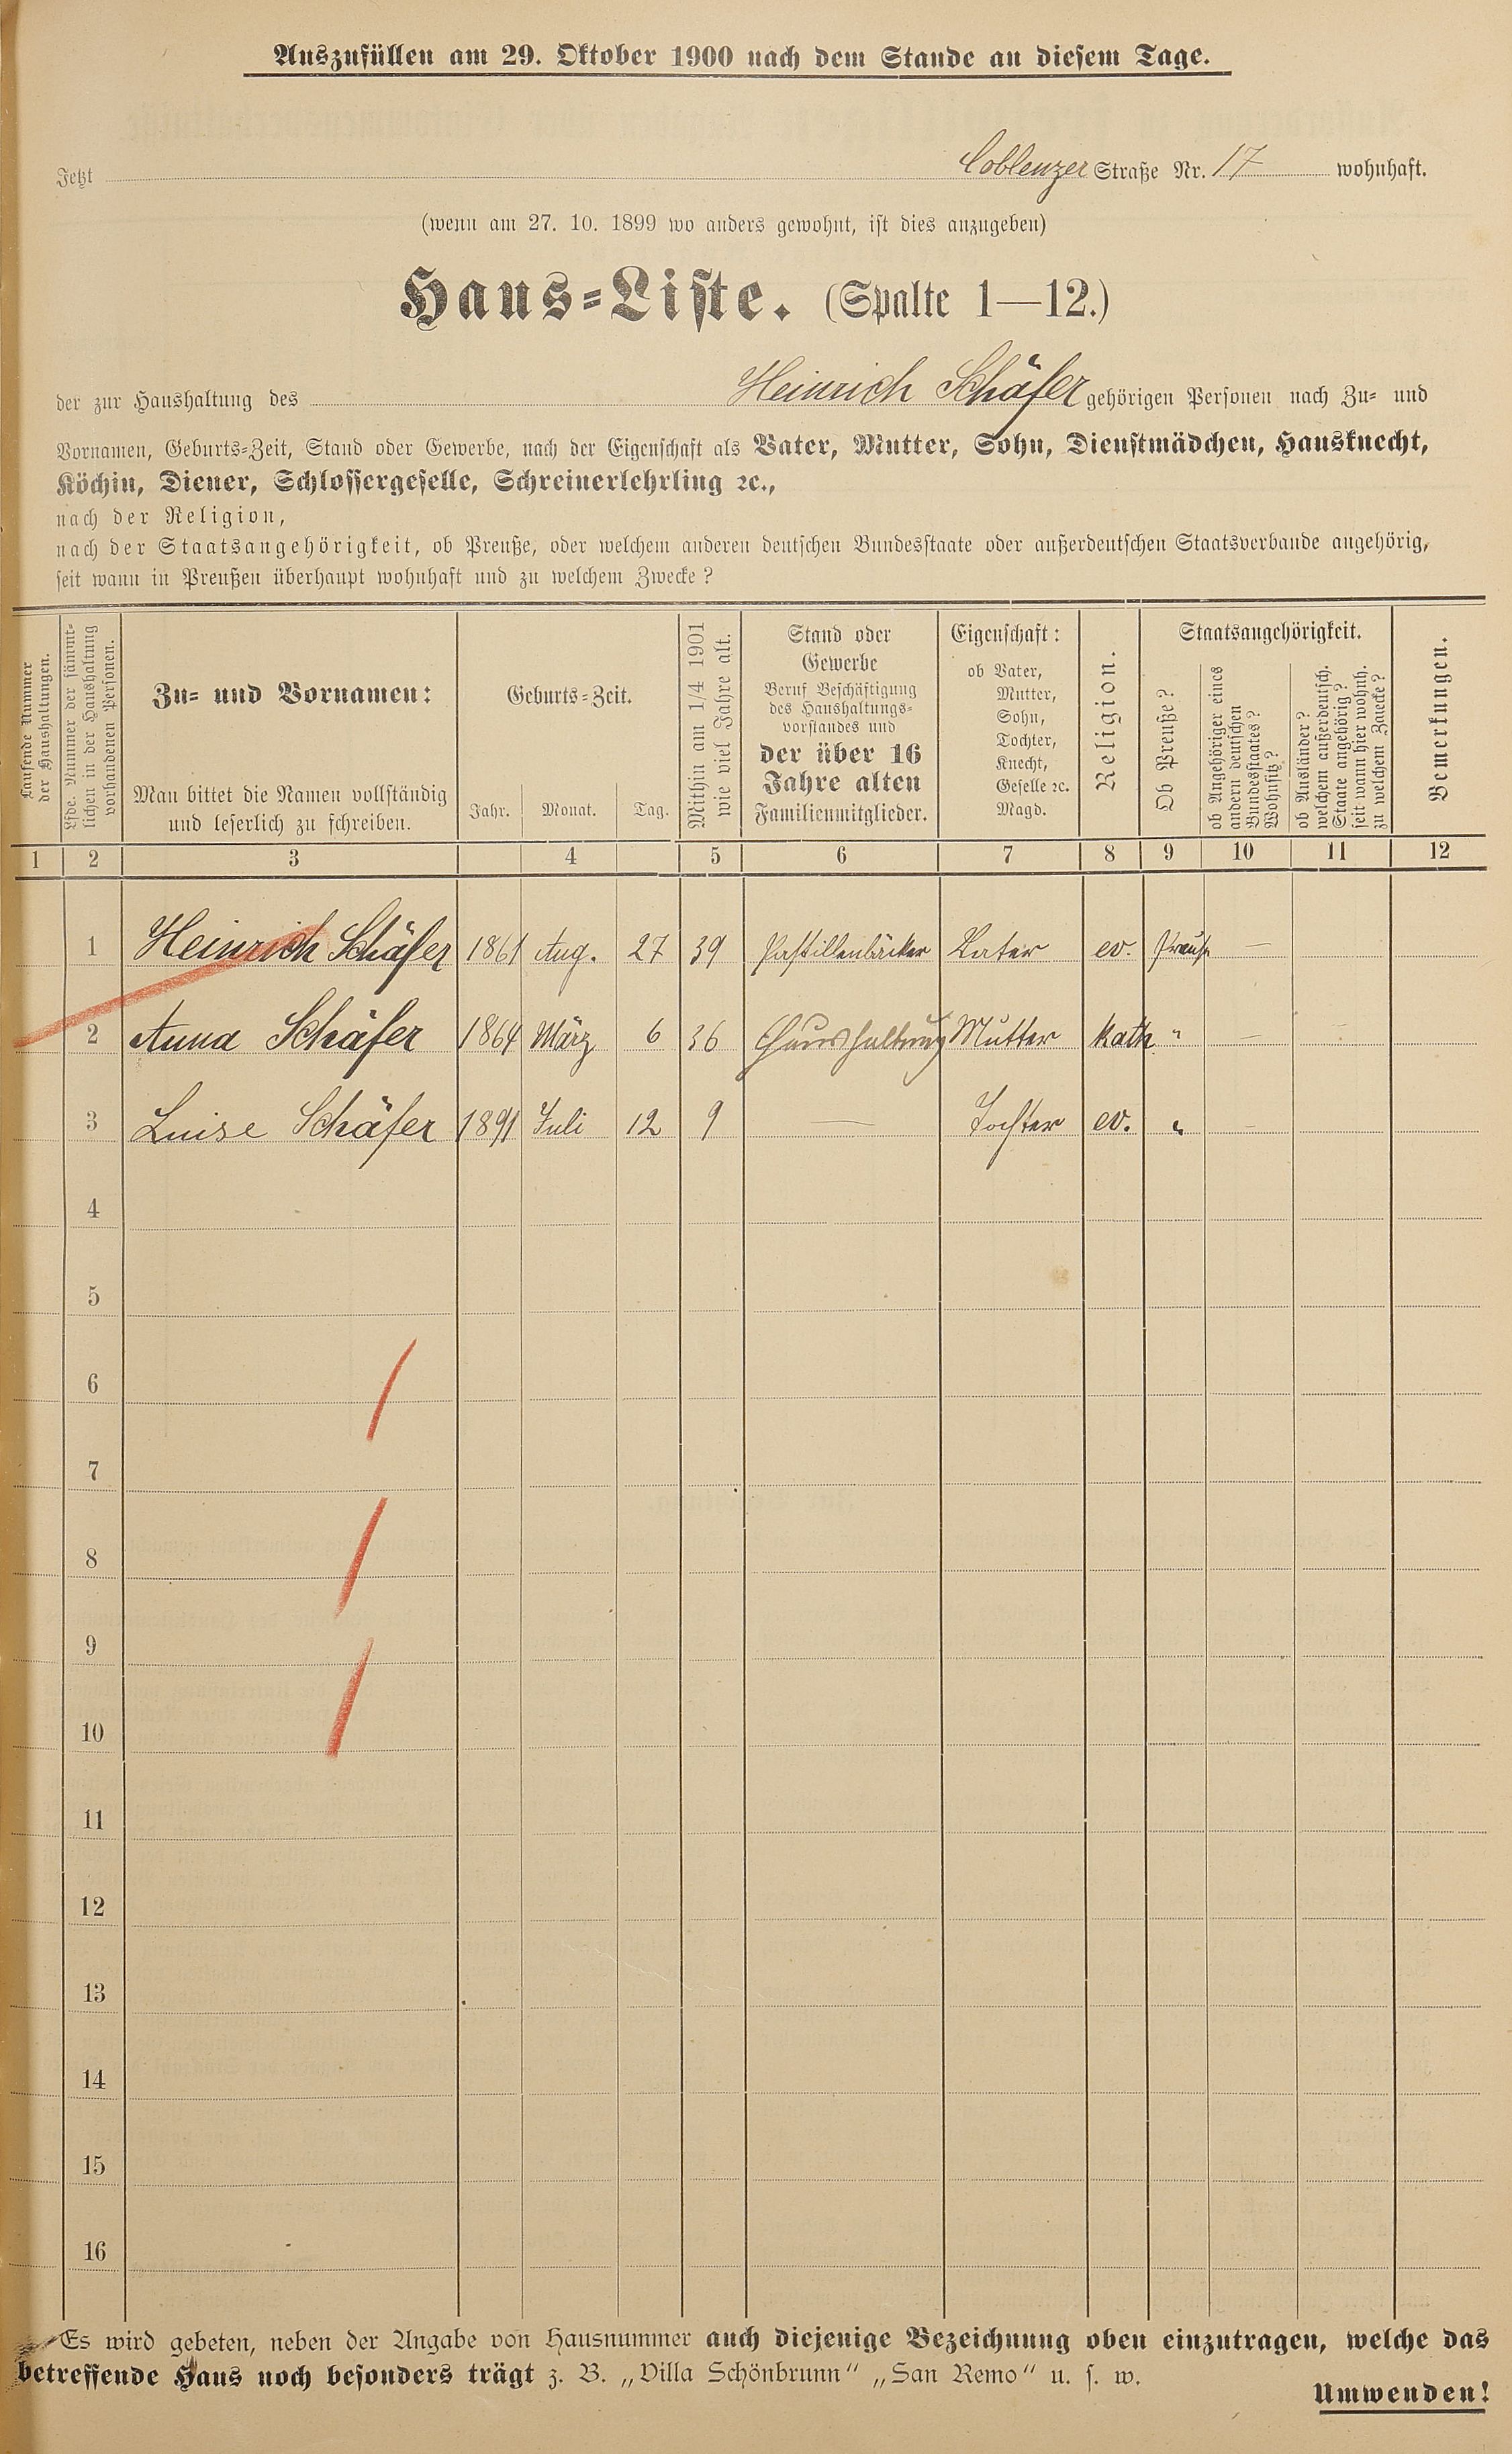 Auszufüllen am 29. Oktober 1900 nach dem Stande an diesem Tage.
Jetzt Coblenzer Straße Nr. 17 wohnhaft.
(wenn am 27. 10. 1899 wo anders gewohnt, ist dies anzugeben)
Haus-Liste. (Spalte 1—12.)
der zur Haushaltung des Heinrich Schäfer gehörigen Personen nach Zu- und
Vornamen, Geburts-Zeit, Stand oder Gewerbe, nach der Eigenschaft als Vater, Mutter, Sohn, Dienstmädchen, Hausknecht,
Köchin, Diener, Schlossergeselle, Schreinerlehrling ꝛc.,
nach der Religion,
nach der Staatsangehörigkeit, ob Preuße, oder welchem anderen deutschen Bundesstaate oder außerdeutschen Staatsverbande angehörig,
seit wann in Preußen überhaupt wohnhaft und zu welchem Zwecke?
Laufende Nummer
der Haushaltungen.
Lfde. Nummer der sämmt-
lichen in der Haushaltung
vorhandenen Personen.
Zu- und Vornamen:
Man bittet die Namen vollständig
und leserlich zu schreiben.
Geburts-Zeit.
Jahr. Monat. Tag.
Mithin am 1/4 1901
wie viel Jahre alt.
Stand oder
Gewerbe
Beruf Beschäftigung
des Haushaltungs-
vorstandes und
der über 16
Jahre alten
Familienmitglieder.
Eigenschaft:
ob Vater,
Mutter,
Sohn,
Tochter,
Knecht,
Geselle ꝛc.
Magd.
Religion.
Staatsangehörigkeit.
Ob Preuße?
ob Angehöriger eines
andern deutschen
Bundesstaates?
Wohnsitz?
ob Ausländer?
welchem außerdeutsch.
Staate angehörig?
seit wann hier wohnh.
zu welchem Zwecke?
Bemerkungen.
1 2 3 4 5 6 7 8 9 10 11 12
1 Heinrich Schäfer 1861 Aug. 27 39 Pastillenbäcker Vater ev. Preuße —
2 Anna Schäfer 1864 März 6 36 Haushaltung Mutter kath " — —
3 Luise Schäfer 1891 Juli 12 9 — Tochter ev. " —
4
5
6
7
8
9
10
11
12
13
14
15
16
Es wird gebeten, neben der Angabe von Hausnummer auch diejenige Bezeichnung oben einzutragen, welche das
betreffende Haus noch besonders trägt z. B. „Villa Schönbrunn“ „San Remo“ u. s. w.
Umwenden!